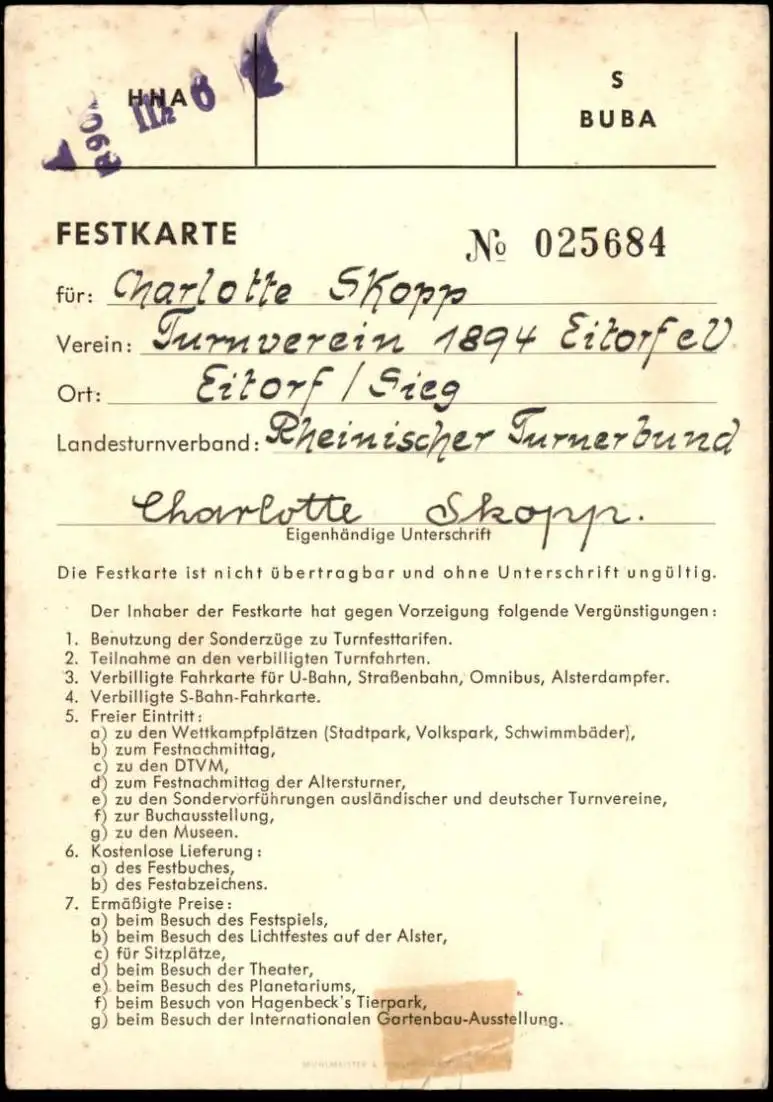 HHA
S
BUBA
FESTKARTE
№ 025684
für: Charlotte Skopp
Verein: Turnverein 1894 Eitorf eV
Ort: Eitorf / Sieg
Landesturnverband: Rheinischer Turnerbund
Charlotte Skopp.
Eigenhändige Unterschrift
Die Festkarte ist nicht übertragbar und ohne Unterschrift ungültig.
Der Inhaber der Festkarte hat gegen Vorzeigung folgende Vergünstigungen:
1. Benutzung der Sonderzüge zu Turnfesttarifen.
2. Teilnahme an den verbilligten Turnfahrten.
3. Verbilligte Fahrkarte für U-Bahn, Straßenbahn, Omnibus, Alsterdampfer.
4. Verbilligte S-Bahn-Fahrkarte.
5. Freier Eintritt:
a) zu den Wettkampfplätzen (Stadtpark, Volkspark, Schwimmbäder),
b) zum Festnachmittag,
c) zu den DTVM,
d) zum Festnachmittag der Altersturner,
e) zu den Sondervorführungen ausländischer und deutscher Turnvereine,
f) zur Buchausstellung,
g) zu den Museen.
6. Kostenlose Lieferung:
a) des Festbuches,
b) des Festabzeichens.
7. Ermäßigte Preise:
a) beim Besuch des Festspiels,
b) beim Besuch des Lichtfestes auf der Alster,
c) für Sitzplätze,
d) beim Besuch der Theater,
e) beim Besuch des Planetariums,
f) beim Besuch von Hagenbeck's Tierpark,
g) beim Besuch der Internationalen Gartenbau-Ausstellung.